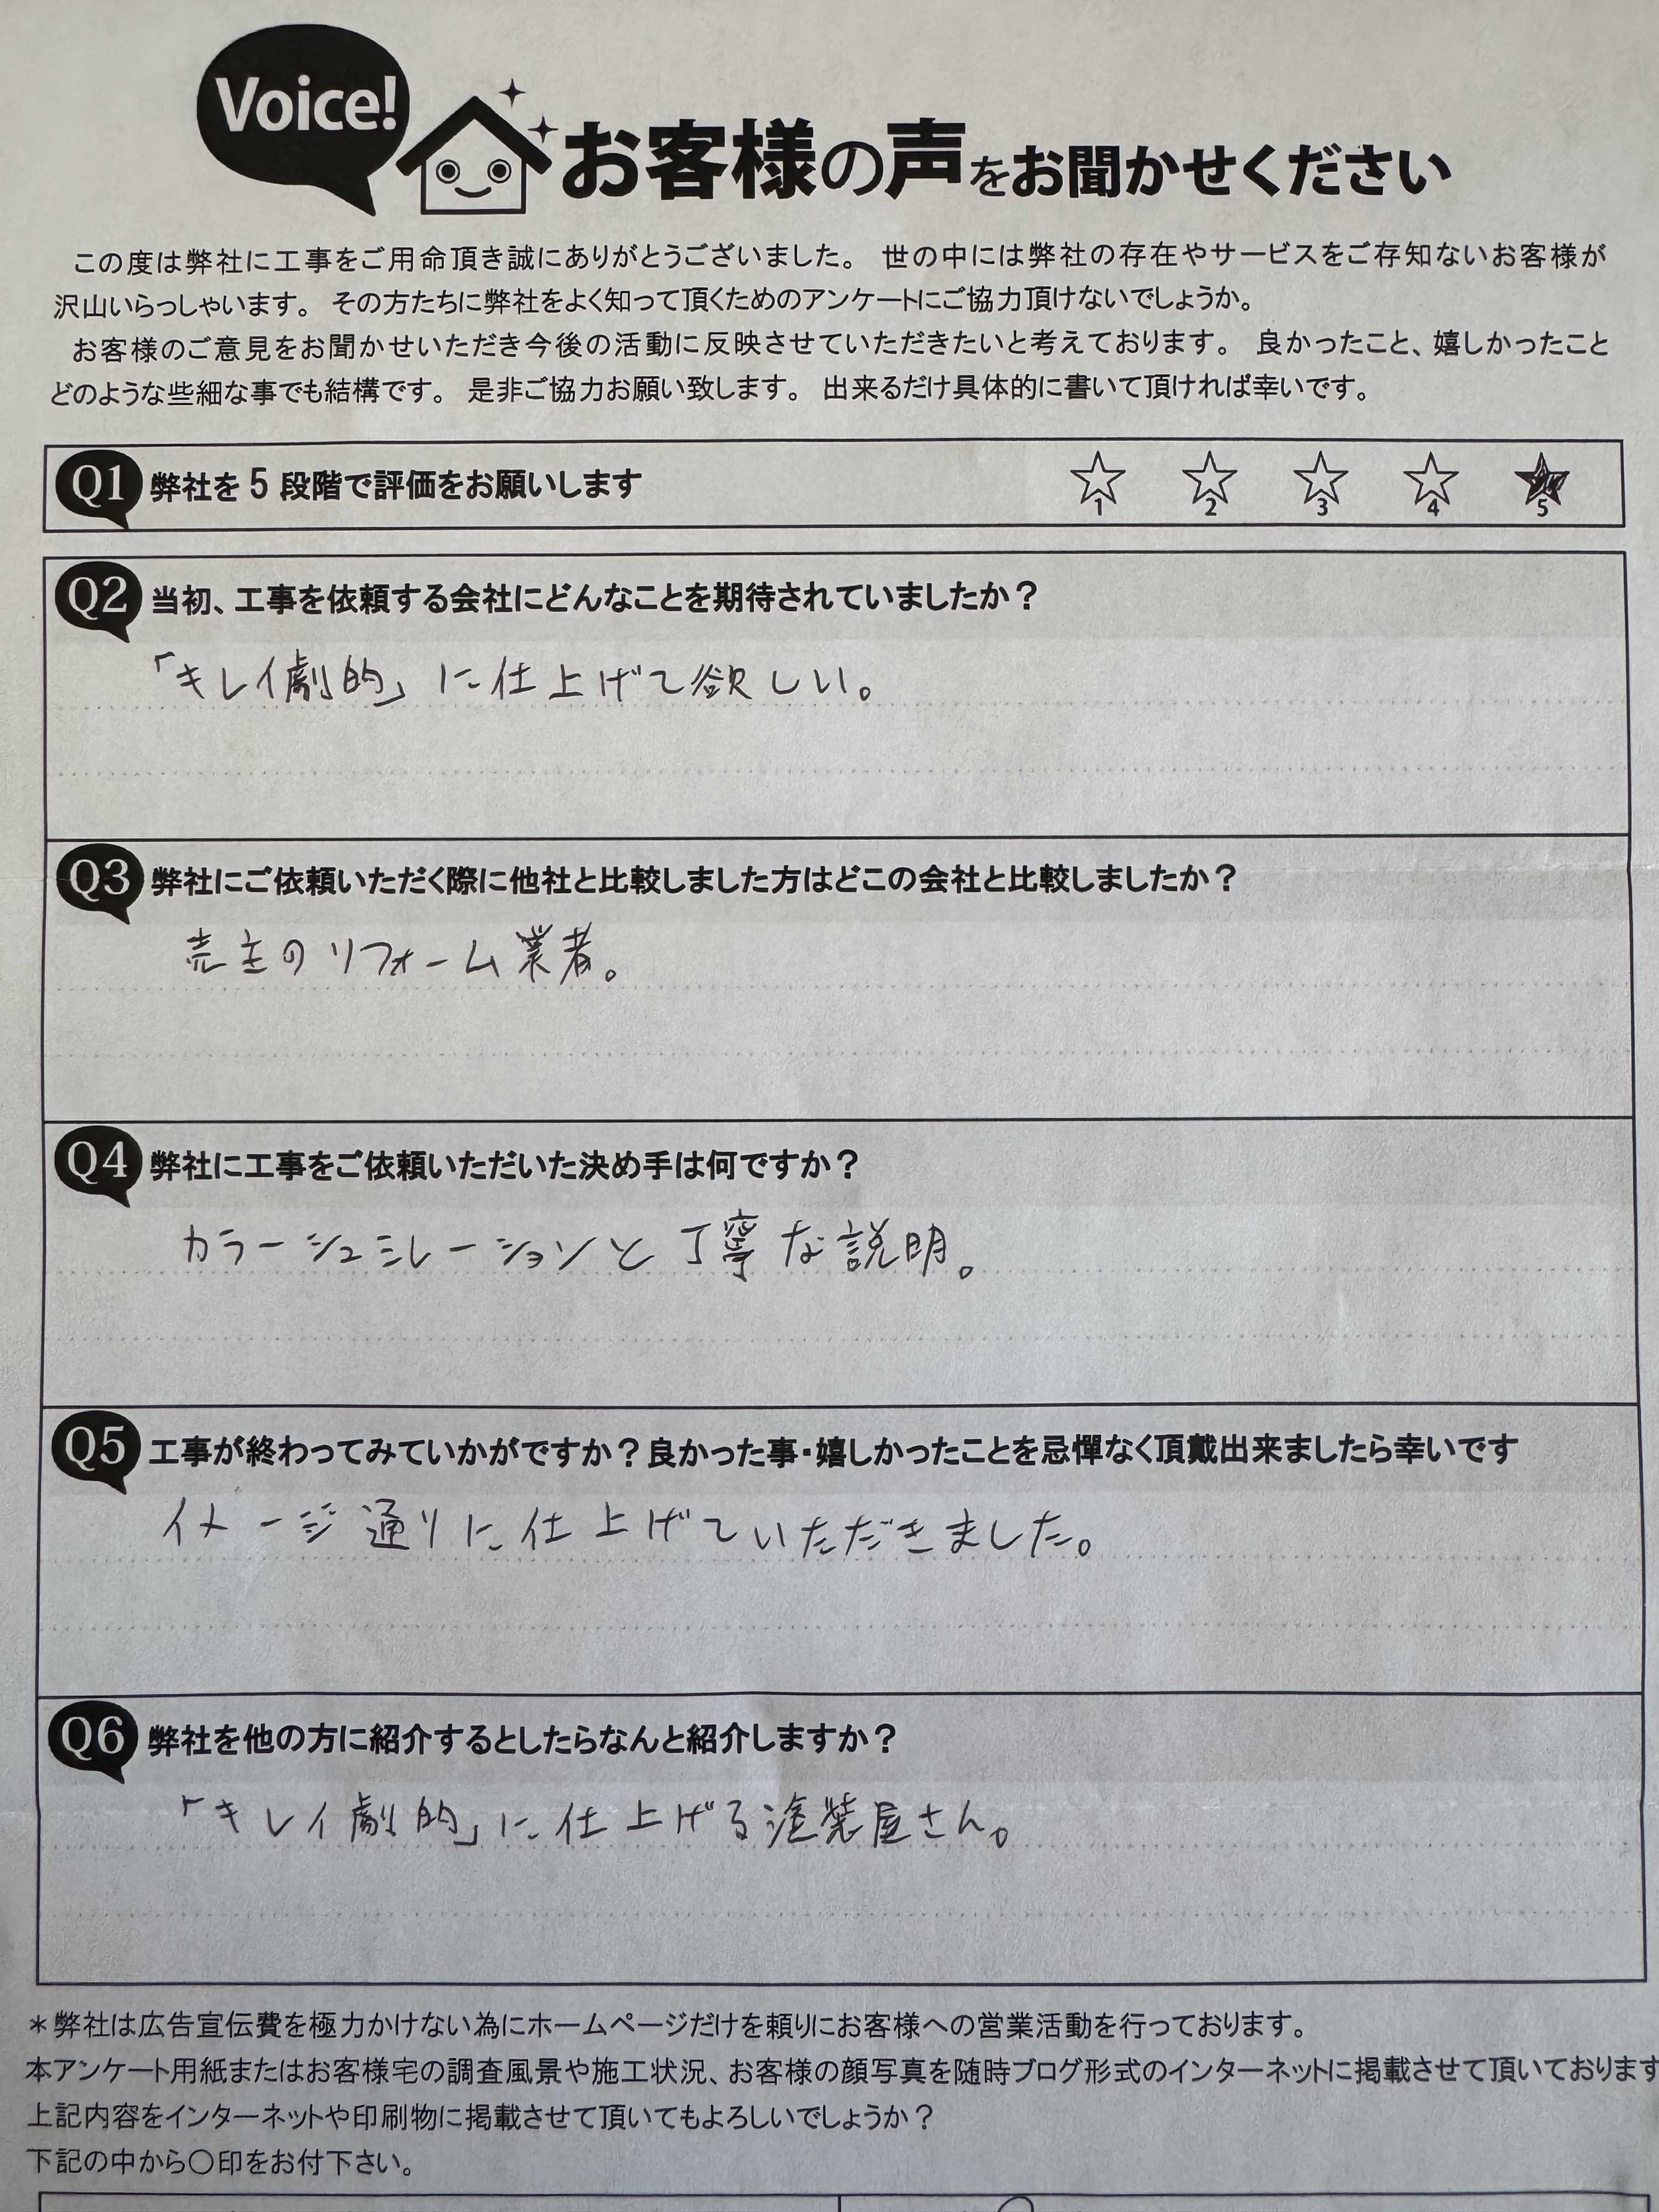 Voice!
お客様の声をお聞かせください
この度は弊社に工事をご用命頂き誠にありがとうございました。 世の中には弊社の存在やサービスをご存知ないお客様が
沢山いらっしゃいます。 その方たちに弊社をよく知って頂くためのアンケートにご協力頂けないでしょうか。
お客様のご意見をお聞かせいただき今後の活動に反映させていただきたいと考えております。 良かったこと、嬉しかったこと
どのような些細な事でも結構です。 是非ご協力お願い致します。 出来るだけ具体的に書いて頂ければ幸いです。
Q1 弊社を5段階で評価をお願いします ☆ ☆ ☆ ☆ ★
1 2 3 4 5
Q2 当初、工事を依頼する会社にどんなことを期待されていましたか？
「キレイ劇的」に仕上げて欲しい。
Q3 弊社にご依頼いただく際に他社と比較しました方はどこの会社と比較しましたか？
売主のリフォーム業者。
Q4 弊社に工事をご依頼いただいた決め手は何ですか？
カラーシュミレーションと丁寧な説明。
Q5 工事が終わってみていかがですか？良かった事・嬉しかったことを忌憚なく頂戴出来ましたら幸いです
イメージ通りに仕上げていただきました。
Q6 弊社を他の方に紹介するとしたらなんと紹介しますか？
「キレイ劇的」に仕上げる塗装屋さん。
＊弊社は広告宣伝費を極力かけない為にホームページだけを頼りにお客様への営業活動を行っております。
本アンケート用紙またはお客様宅の調査風景や施工状況、お客様の顔写真を随時ブログ形式のインターネットに掲載させて頂いております
上記内容をインターネットや印刷物に掲載させて頂いてもよろしいでしょうか？
下記の中から〇印をお付下さい。